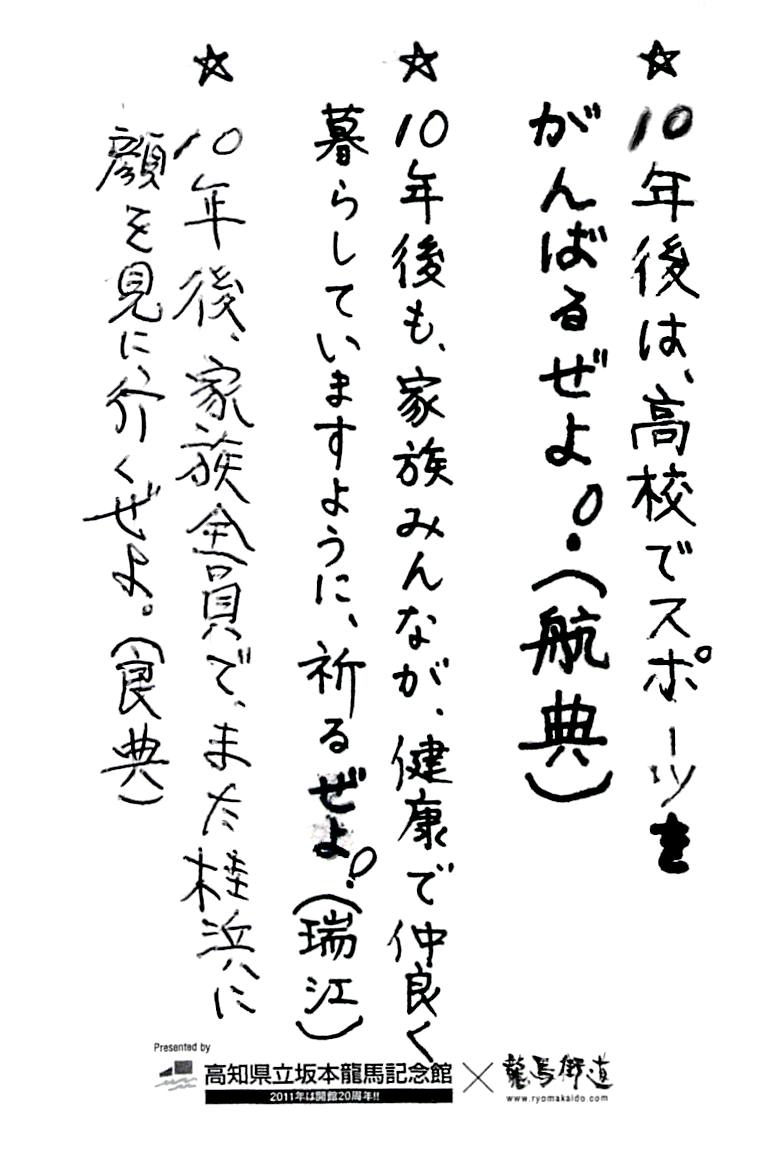 ☆10年後は、高校でスポーツを
がんばるぜよ!(航典)
☆10年後も、家族みんなが、健康で仲良く
暮らしていますように、祈るぜよ!(瑞江)
☆10年後、家族全員で、また桂浜に
顔を見に、行くぜよ。(良典)
Presented by
高知県立坂本龍馬記念館×龍馬街道
2011年は開館20周年!!
www.ryomakaido.com